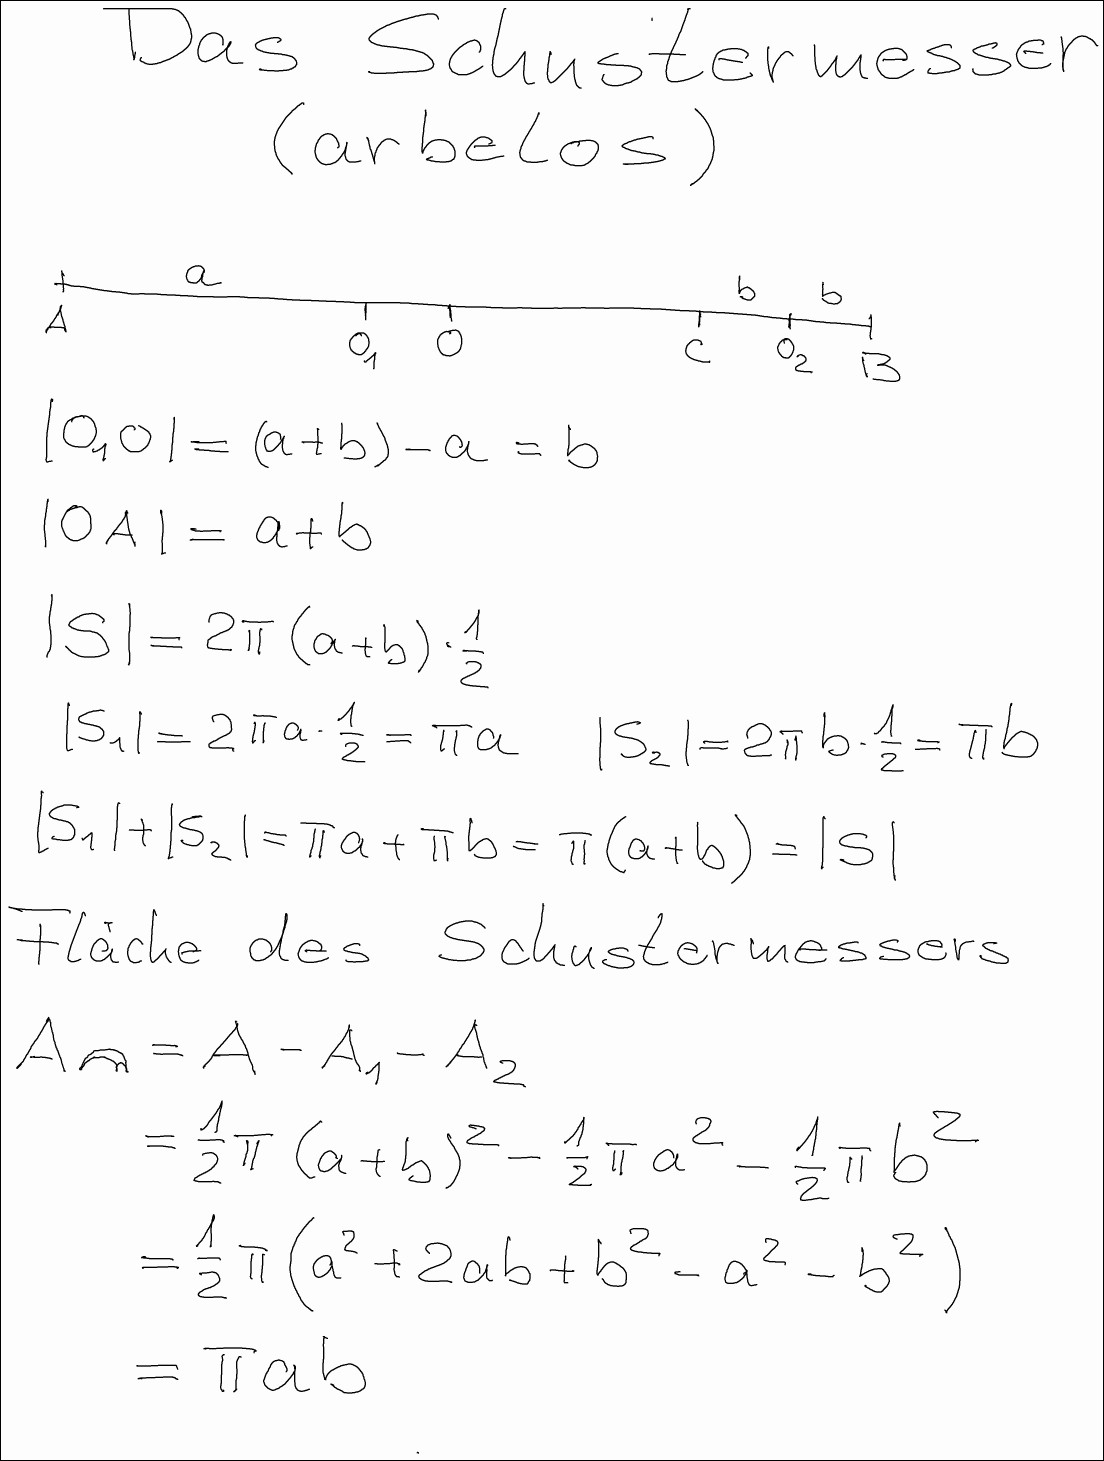 Das Schustermesser
(arbelos)
a b b
A O₁ O C O₂ B
|O₁O| = (a+b) - a = b
|OA| = a+b
|S| = 2π(a+b)·1/2
|S₁| = 2πa·1/2 = πa |S₂| = 2πb·1/2 = πb
|S₁|+|S₂| = πa + πb = π(a+b) = |S|
Fläche des Schustermessers
A = A - A₁ - A₂
= 1/2 π (a+b)² - 1/2 π a² - 1/2 π b²
= 1/2 π (a² + 2ab + b² - a² - b²)
= πab